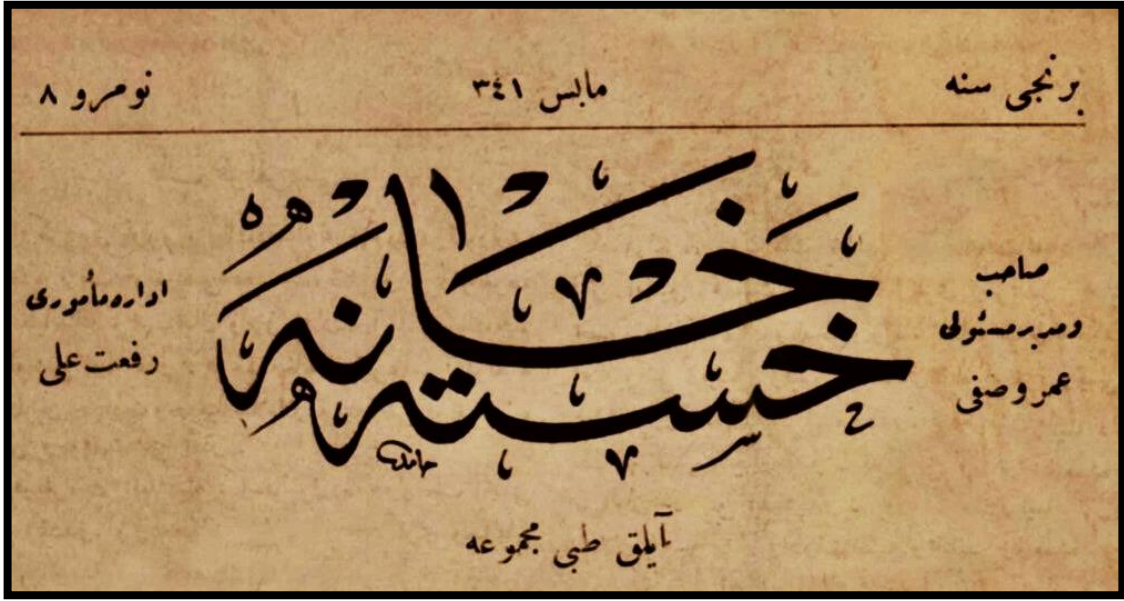 برنجی سنه
مایس ٣٤١
نومرو ٨
صاحب
ومدیر مسئولی
عمر وصفی
خسته خانه
حامد
اداره مأموری
رفعت علی
آیلق طبی مجموعه